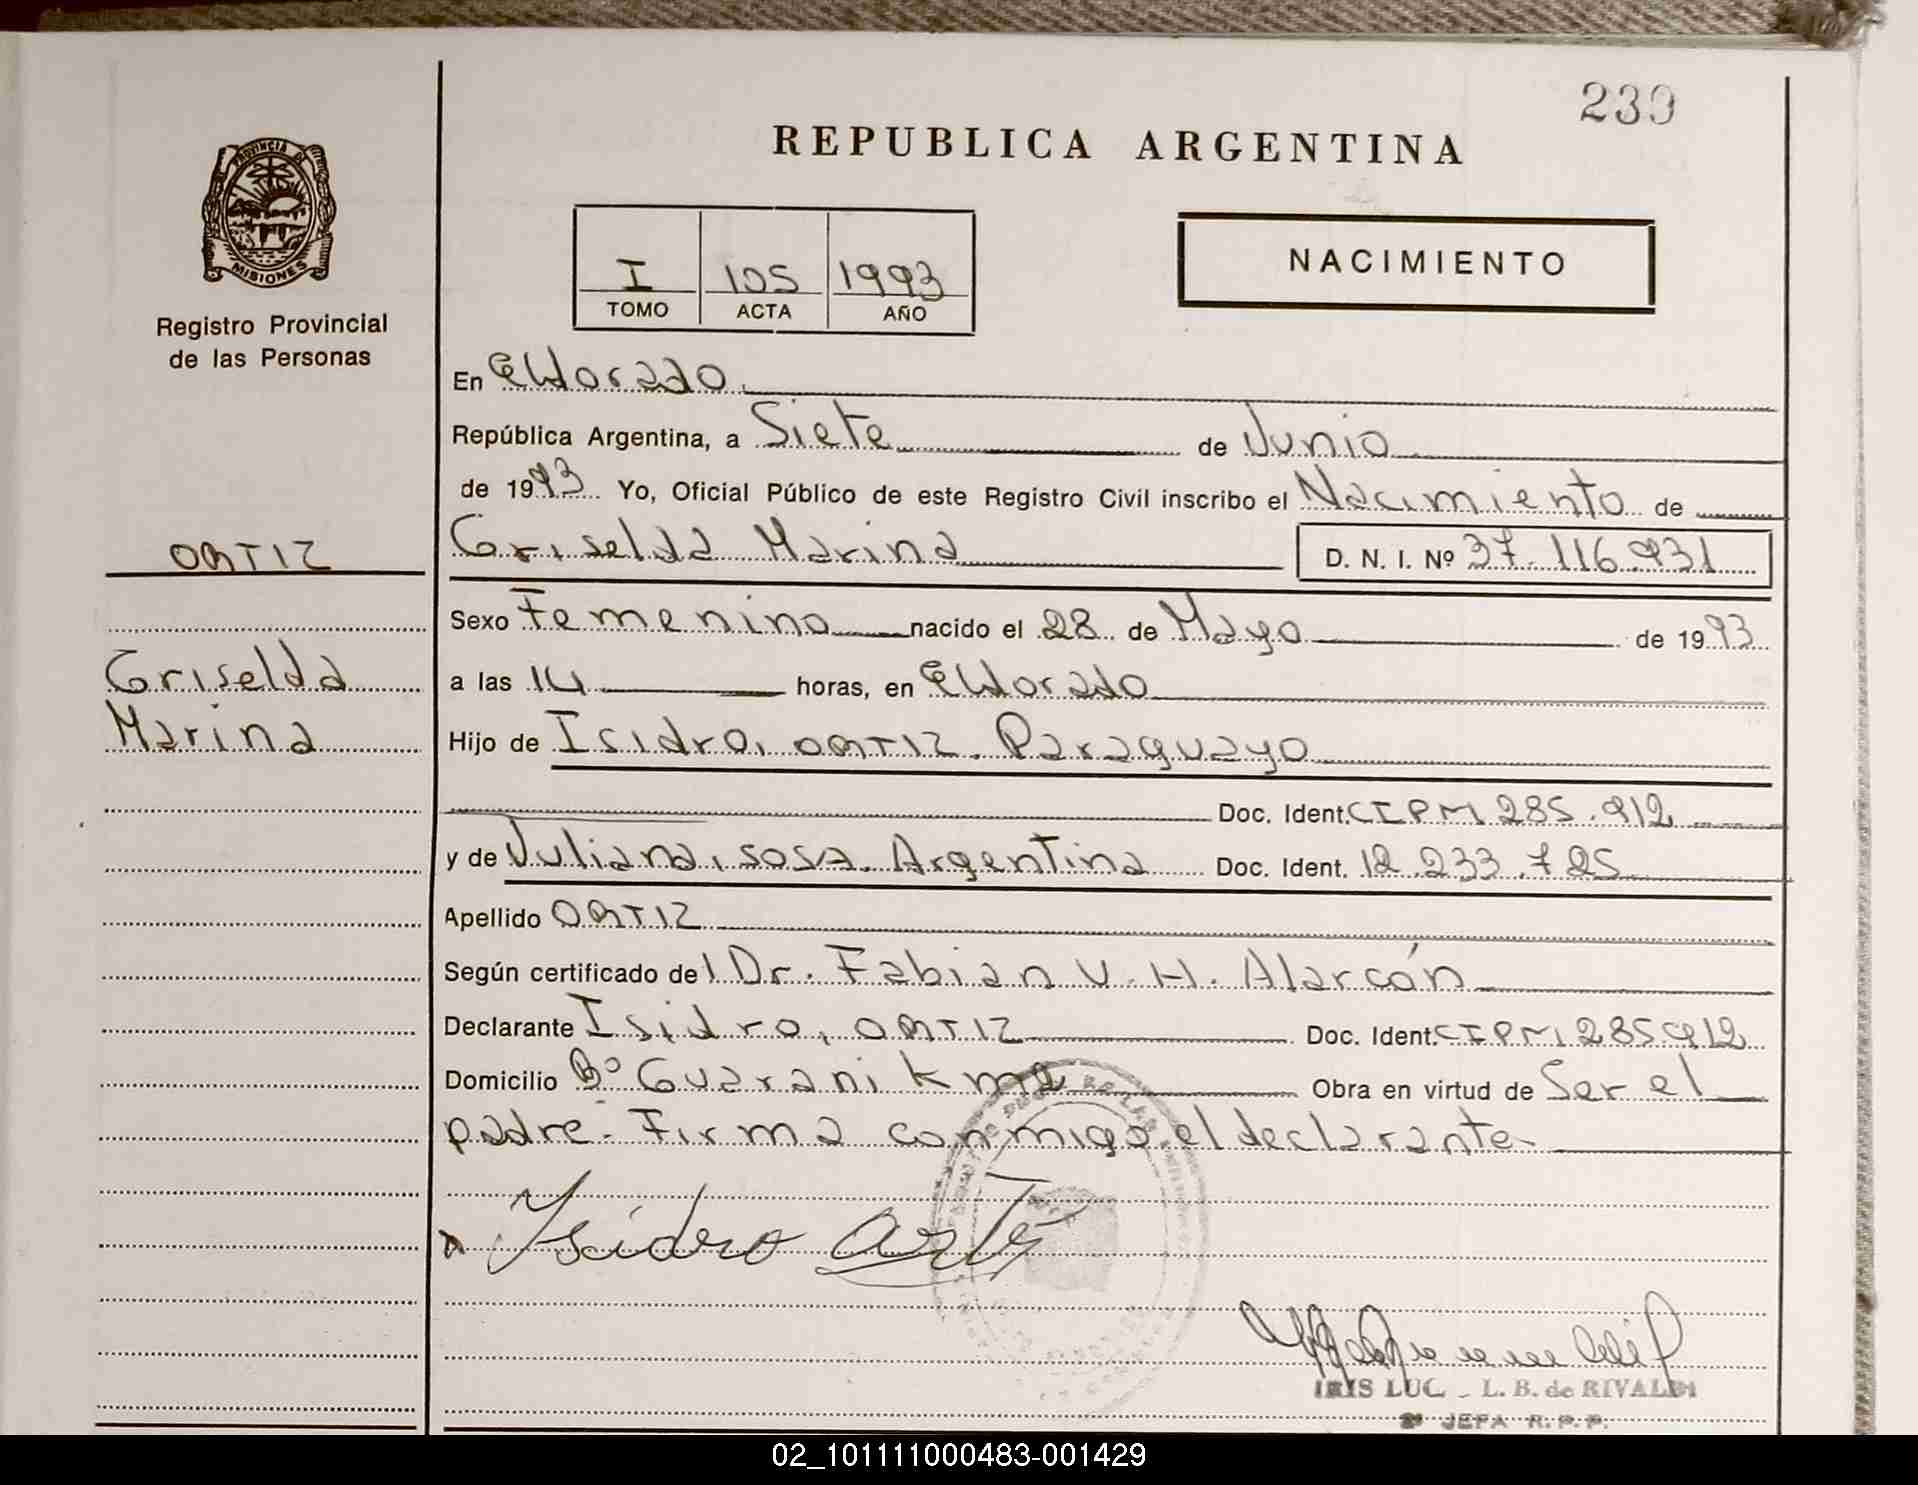 239
REPUBLICA ARGENTINA
PROVINCIA DE
MISIONES
Registro Provincial
de las Personas
I 105 1993
TOMO ACTA AÑO
NACIMIENTO
En Eldorado
República Argentina, a Siete de Junio
de 1993 Yo, Oficial Público de este Registro Civil inscribo el Nacimiento de
ORTIZ
Griselda Marina D. N. I. Nº 37.116.931
Sexo Femenino nacido el 28 de Mayo de 1993
Griselda
a las 14 horas, en Eldorado
Marina
Hijo de Isidro, ORTIZ. Paraguayo
Doc. Ident. CIPM 285.912
y de Juliana, SOSA. Argentina Doc. Ident. 12.233.725
Apellido ORTIZ
Según certificado del Dr. Fabian V. H. Alarcón
Declarante Isidro, ORTIZ Doc. Ident. CIPM 285912
Domicilio Bº Guarani km 2 Obra en virtud de Ser el
padre. Firma conmigo el declarante
Isidro Ortiz
IRIS LUC L. B. de RIVALDI
2ª JEFA R.P.P.
02_101111000483-001429